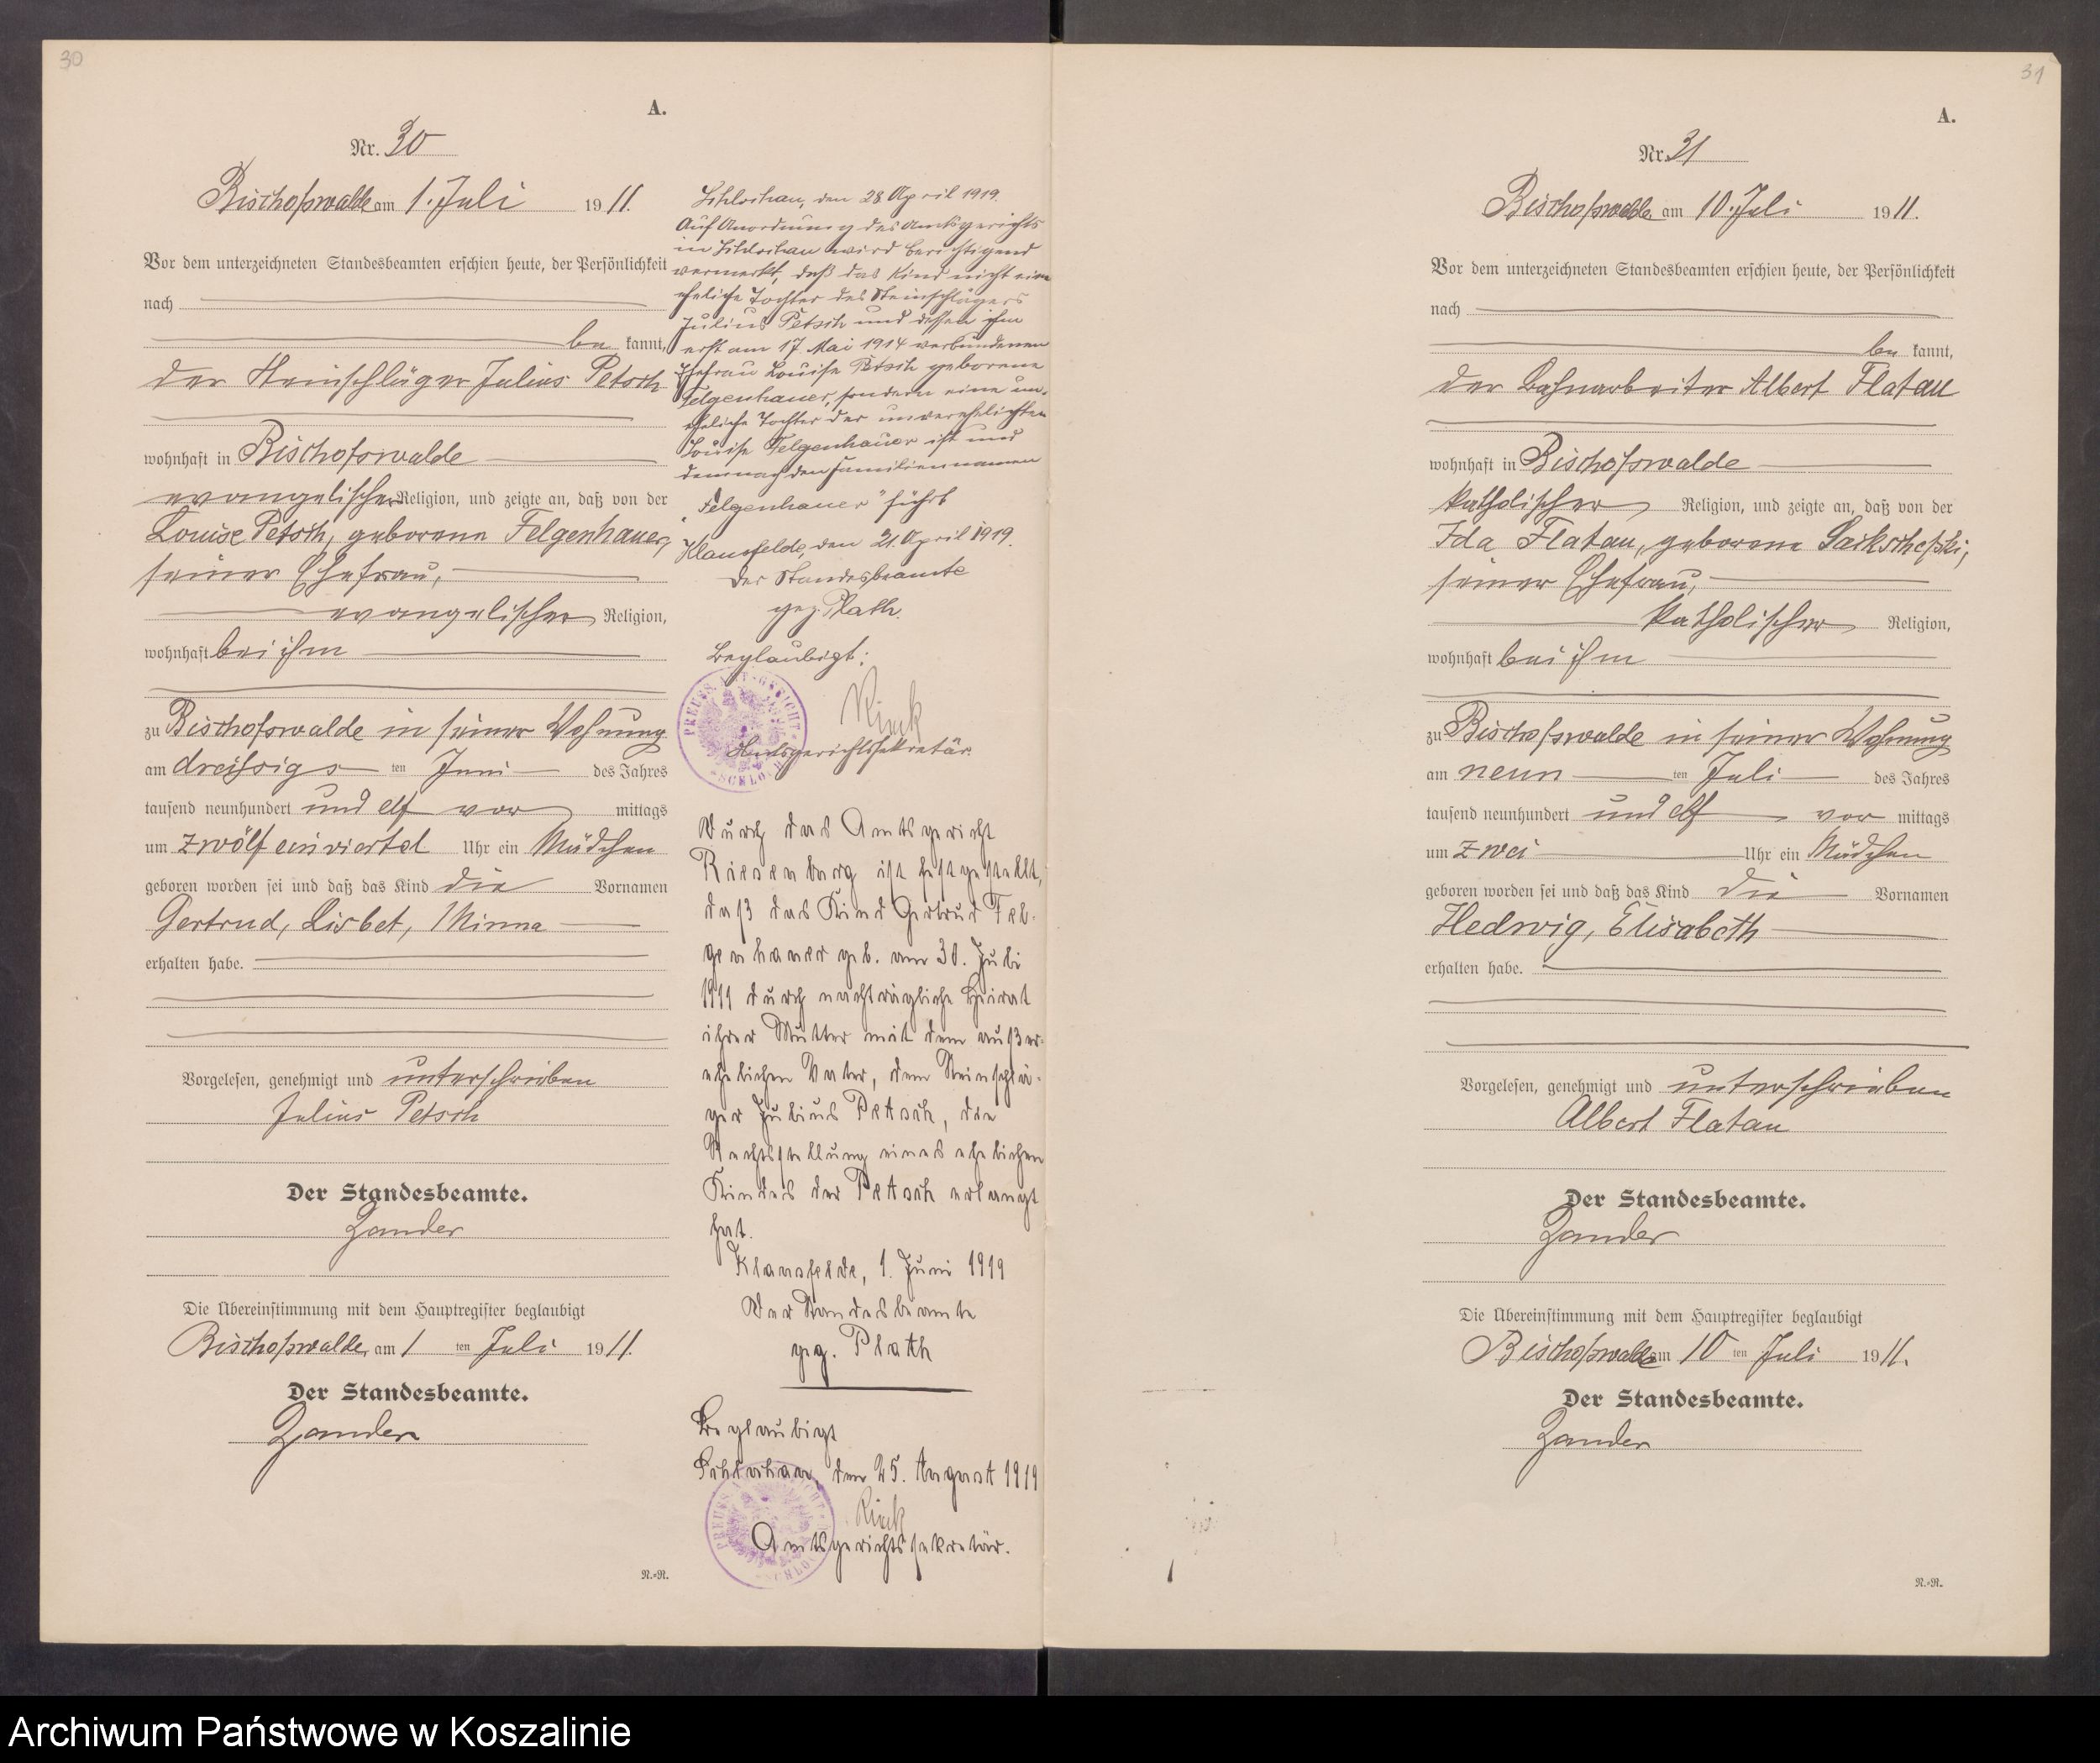 30
A.
Nr. 30
Bischofswalde am 1. Juli 1911.
Vor dem unterzeichneten Standesbeamten erschien heute, der Persönlichkeit
nach
be kannt,
der Steinschläger Julius Petsch
wohnhaft in Bischofswalde
evangelischer Religion, und zeigte an, daß von der
Louise Petsch, geborene Felgenhauer,
seiner Ehefrau,
evangelischer Religion,
wohnhaft bei ihm
zu Bischofswalde in seiner Wohnung
am dreissigs ten Juni des Jahres
tausend neunhundert und elf vor mittags
um zwölf einviertel Uhr ein Mädchen
geboren worden sei und daß das Kind die Vornamen
Gertrud, Lisbet, Minna
erhalten habe.
Vorgelesen, genehmigt und unterschrieben
Julius Petsch
Der Standesbeamte.
Zander
Die Übereinstimmung mit dem Hauptregister beglaubigt
Bischofswalde, am 1 ten Juli 1911.
Der Standesbeamte.
Zander
N.-R.
Schlochau, den 28 April 1919.
Auf Anordnung des Amtsgerichts
in Schlochau wird berichtigend
vermerkt, daß das Kind nicht eine
eheliche Tochter des Steinschlägers
Julius Petsch und dessen ihm
erst am 17 Mai 1914 verbundenen
Ehefrau Louise Petsch geborene
Felgenhauer, sondern eine un-
eheliche Tochter der unverehelichten
Louise Felgenhauer ist und
demnach den Familiennamen
„Felgenhauer" führt
Klausfelde, den 21. April 1919.
Der Standesbeamte
gez. Plath.
Beglaubigt:
Rinck
Amtsgerichtssekretär.
Durch das Amtsgericht
Riesenburg ist festgestellt,
daß das Kind Gertrud Fel-
genhauer geb. am 30. Juli
1911 durch nachträgliche Heirat
ihrer Mutter mit dem außer-
ehelichen Vater, dem Steinschlä-
ger Julius Petsch, die
Rechtsstellung eines ehelichen
Kindes der Petsch erlangt
hat.
Klausfelde, 1. Juni 1919
Der Standesbeamte
gez. Plath
Beglaubigt
Schlochau, den 25. August 1919
Rinck
Amtsgerichtssekretär.
31
A.
Nr. 31
Bischofswalde am 10. Juli 1911.
Vor dem unterzeichneten Standesbeamten erschien heute, der Persönlichkeit
nach
be kannt,
der Bahnarbeiter Albert Flatau
wohnhaft in Bischofswalde
katholischer Religion, und zeigte an, daß von der
Ida Flatau, geborene
seiner Ehefrau,
katholischer Religion,
wohnhaft bei ihm
zu Bischofswalde in seiner Wohnung
am neun ten Juli des Jahres
tausend neunhundert und elf vor mittags
um zwei Uhr ein Mädchen
geboren worden sei und daß das Kind die Vornamen
Hedwig, Elisabeth
erhalten habe.
Vorgelesen, genehmigt und unterschrieben
Albert Flatau
Der Standesbeamte.
Zander
Die Übereinstimmung mit dem Hauptregister beglaubigt
Bischofswalde am 10 ten Juli 1911.
Der Standesbeamte.
Zander
N.-R.
Archiwum Państwowe w Koszalinie